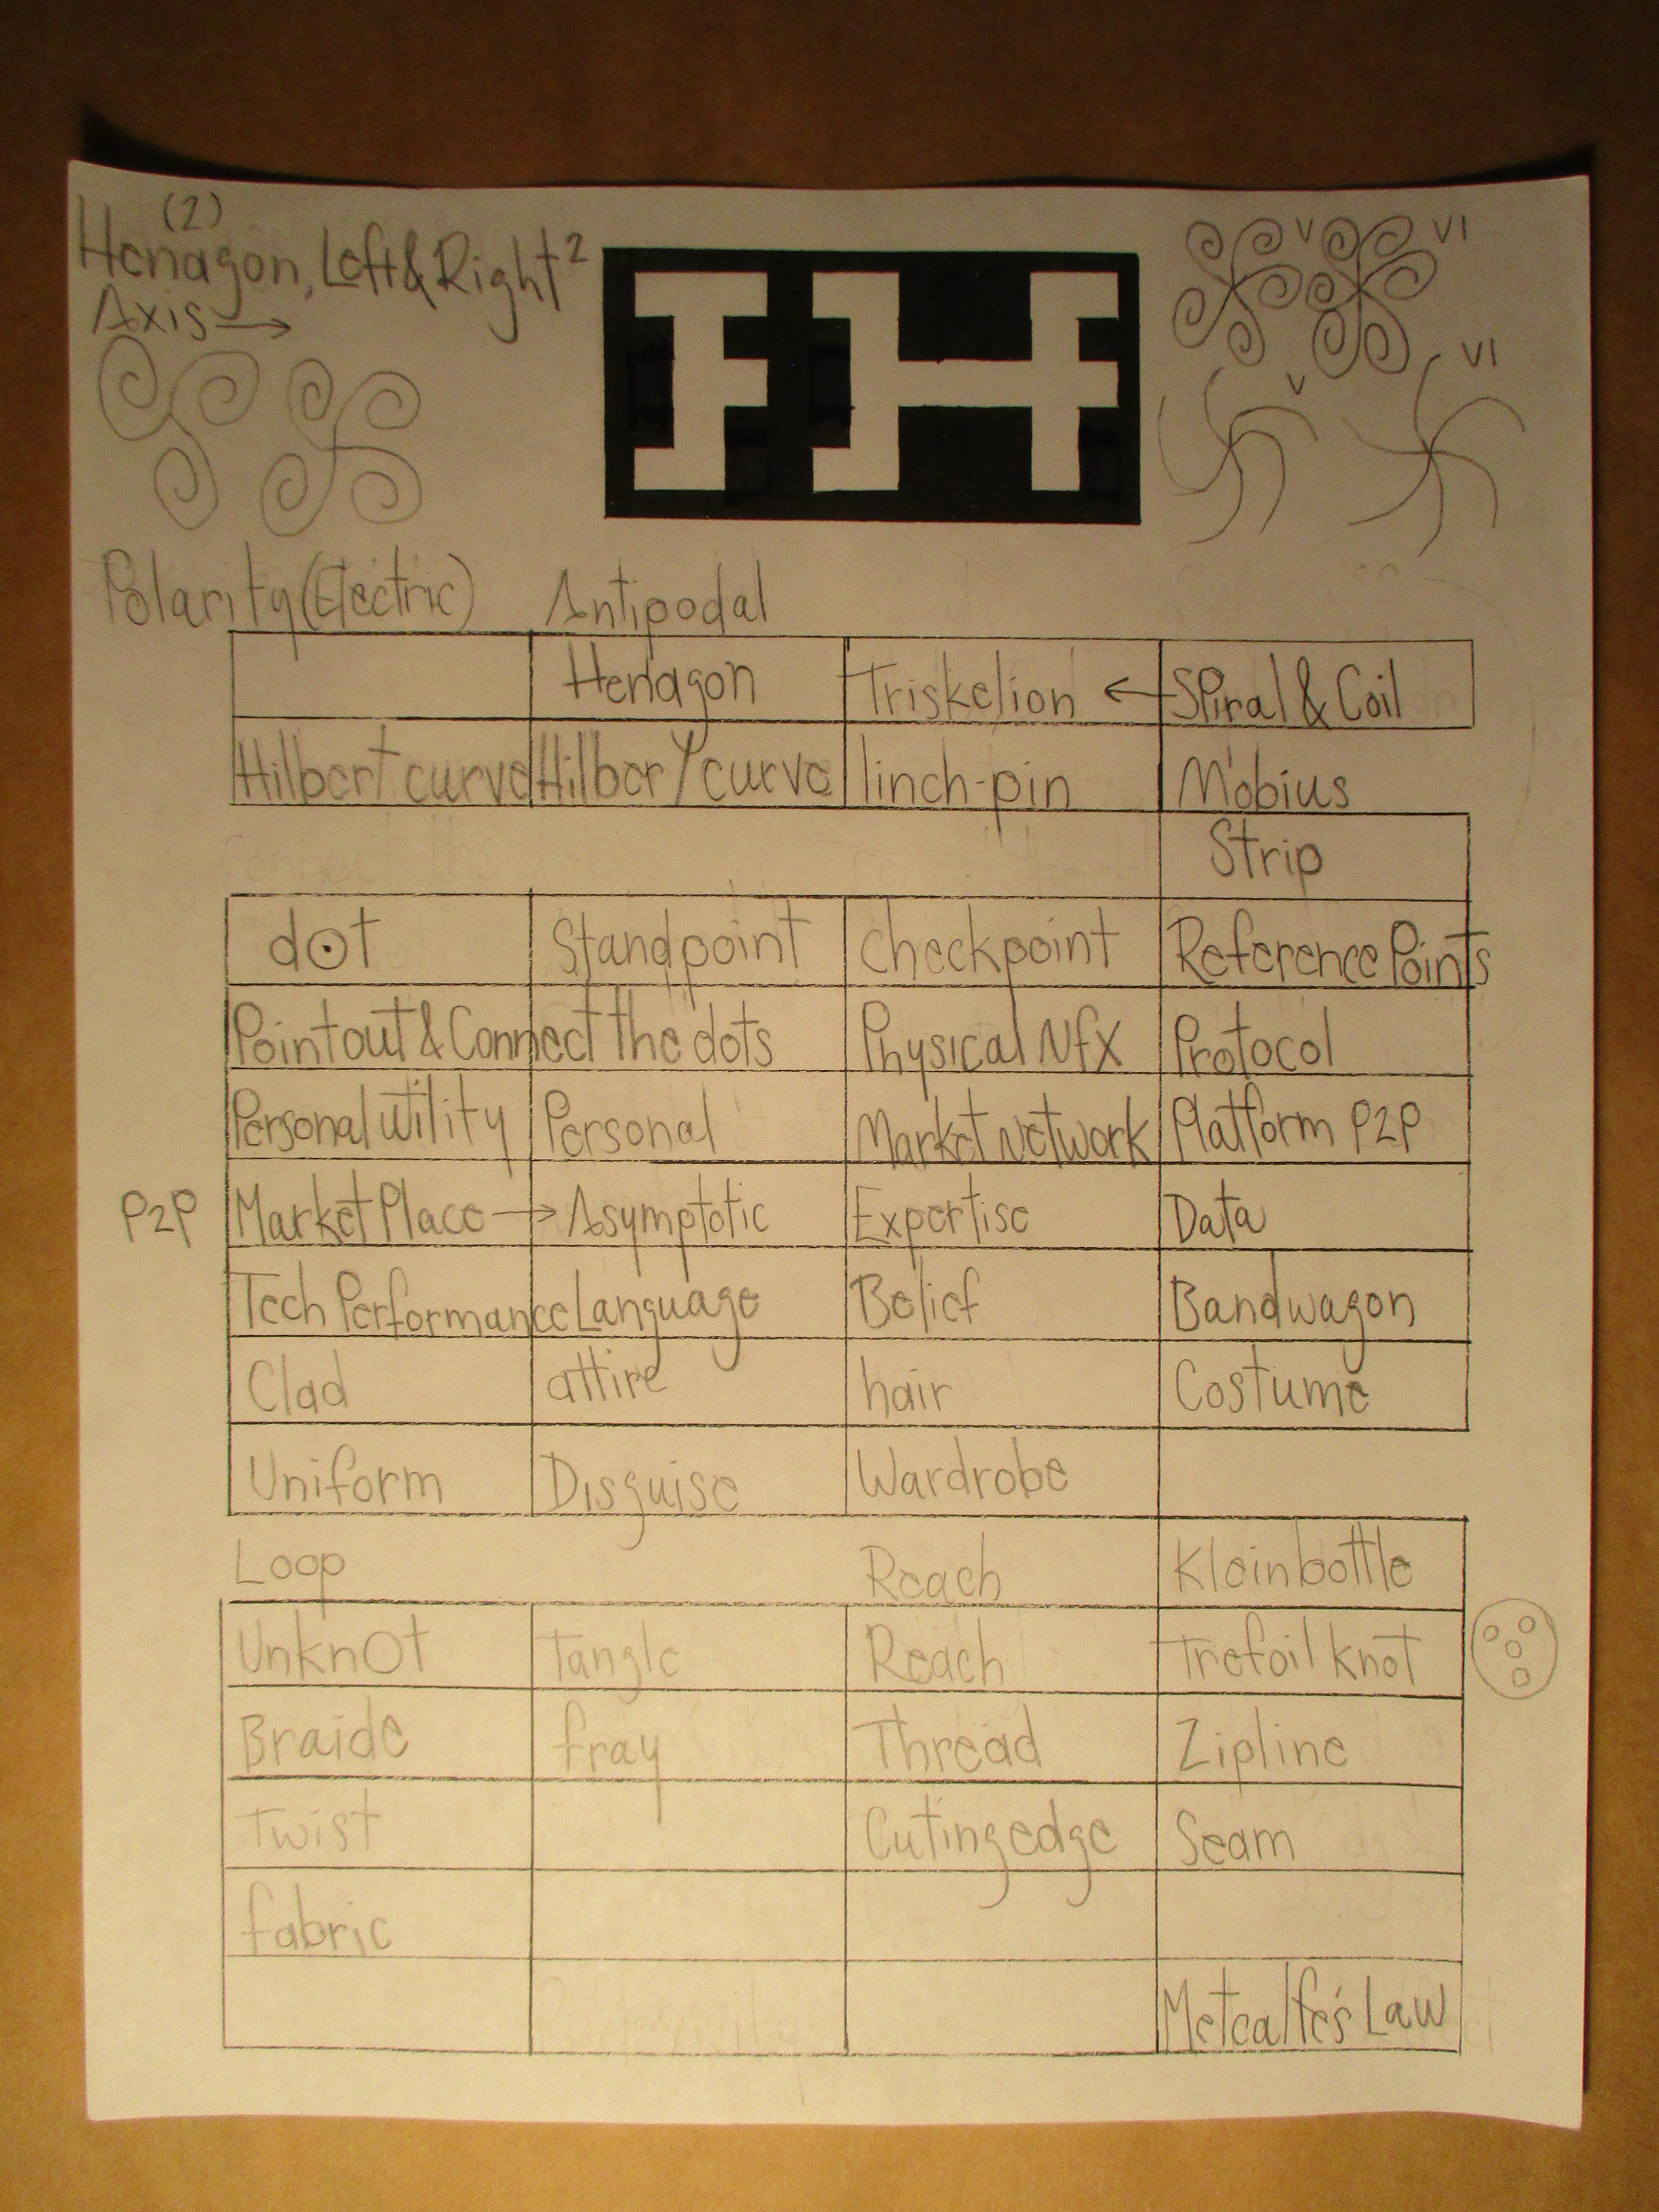 (2)
Henagon, Left & Right²
Axis →
V VI
V VI
Polarity (Electric) Antipodal
Henagon Triskelion ← Spiral & Coil
Hilbert curve Hilbert curve linch-pin Möbius
Strip
dot Standpoint Checkpoint Reference Points
Point out & Connect the dots Physical Nfx Protocol
Personal Utility Personal Market Network Platform P2P
P2P Market Place → Asymptotic Expertise Data
Tech Performance Language Belief Bandwagon
Clad attire hair Costume
Uniform Disguise Wardrobe
Loop Reach Kleinbottle
Unknot Tangle Reach Trefoil knot
Braide fray Thread Zipline
Twist Cutingedge Seam
fabric
Metcalfe's Law